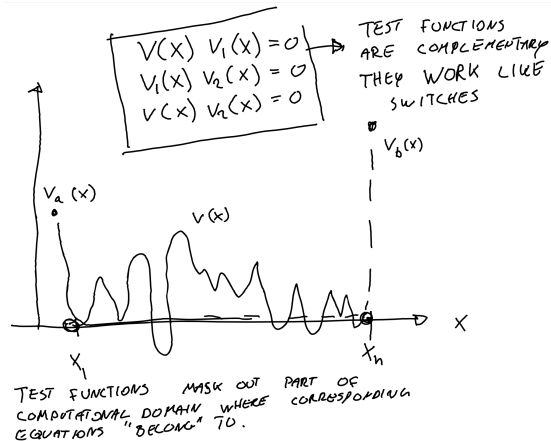 V(x) V₁(x) = 0
V₁(x) V₂(x) = 0
V(x) V₂(x) = 0
TEST FUNCTIONS
ARE COMPLEMENTARY
THEY WORK LIKE
SWITCHES
Vₐ(x)
V(x)
V_b(x)
X
X₁
Xₙ
TEST FUNCTIONS MASK OUT PART OF
COMPUTATIONAL DOMAIN WHERE CORRESPONDING
EQUATIONS "BELONG" TO.